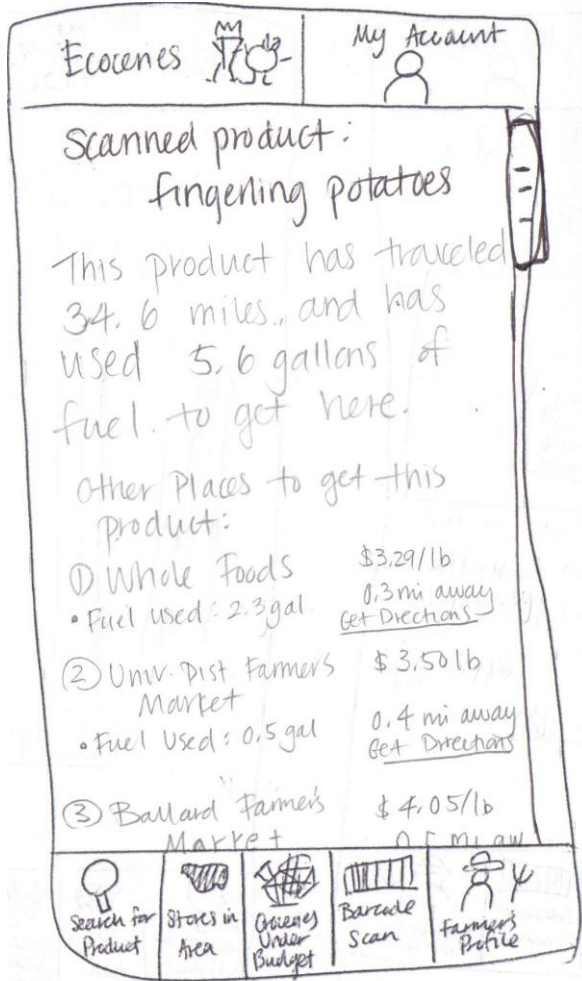 Ecoceries
My Account
Scanned product:
fingerling potatoes
This product has traveled
34.6 miles, and has
used 5.6 gallons of
fuel to get here.
Other Places to get this
product:
① Whole Foods $3.29/lb
• Fuel used: 2.3 gal. 0.3 mi away
Get Directions
② Univ. Dist Farmers $3.50 lb
Market
• Fuel Used: 0.5 gal 0.4 mi away
Get Directions
③ Ballard Farmer's $4.05/lb
Market
Search for
Product
Stores in
Area
Groceries
Under
Budget
Barcode
Scan
Farmer's
Profile